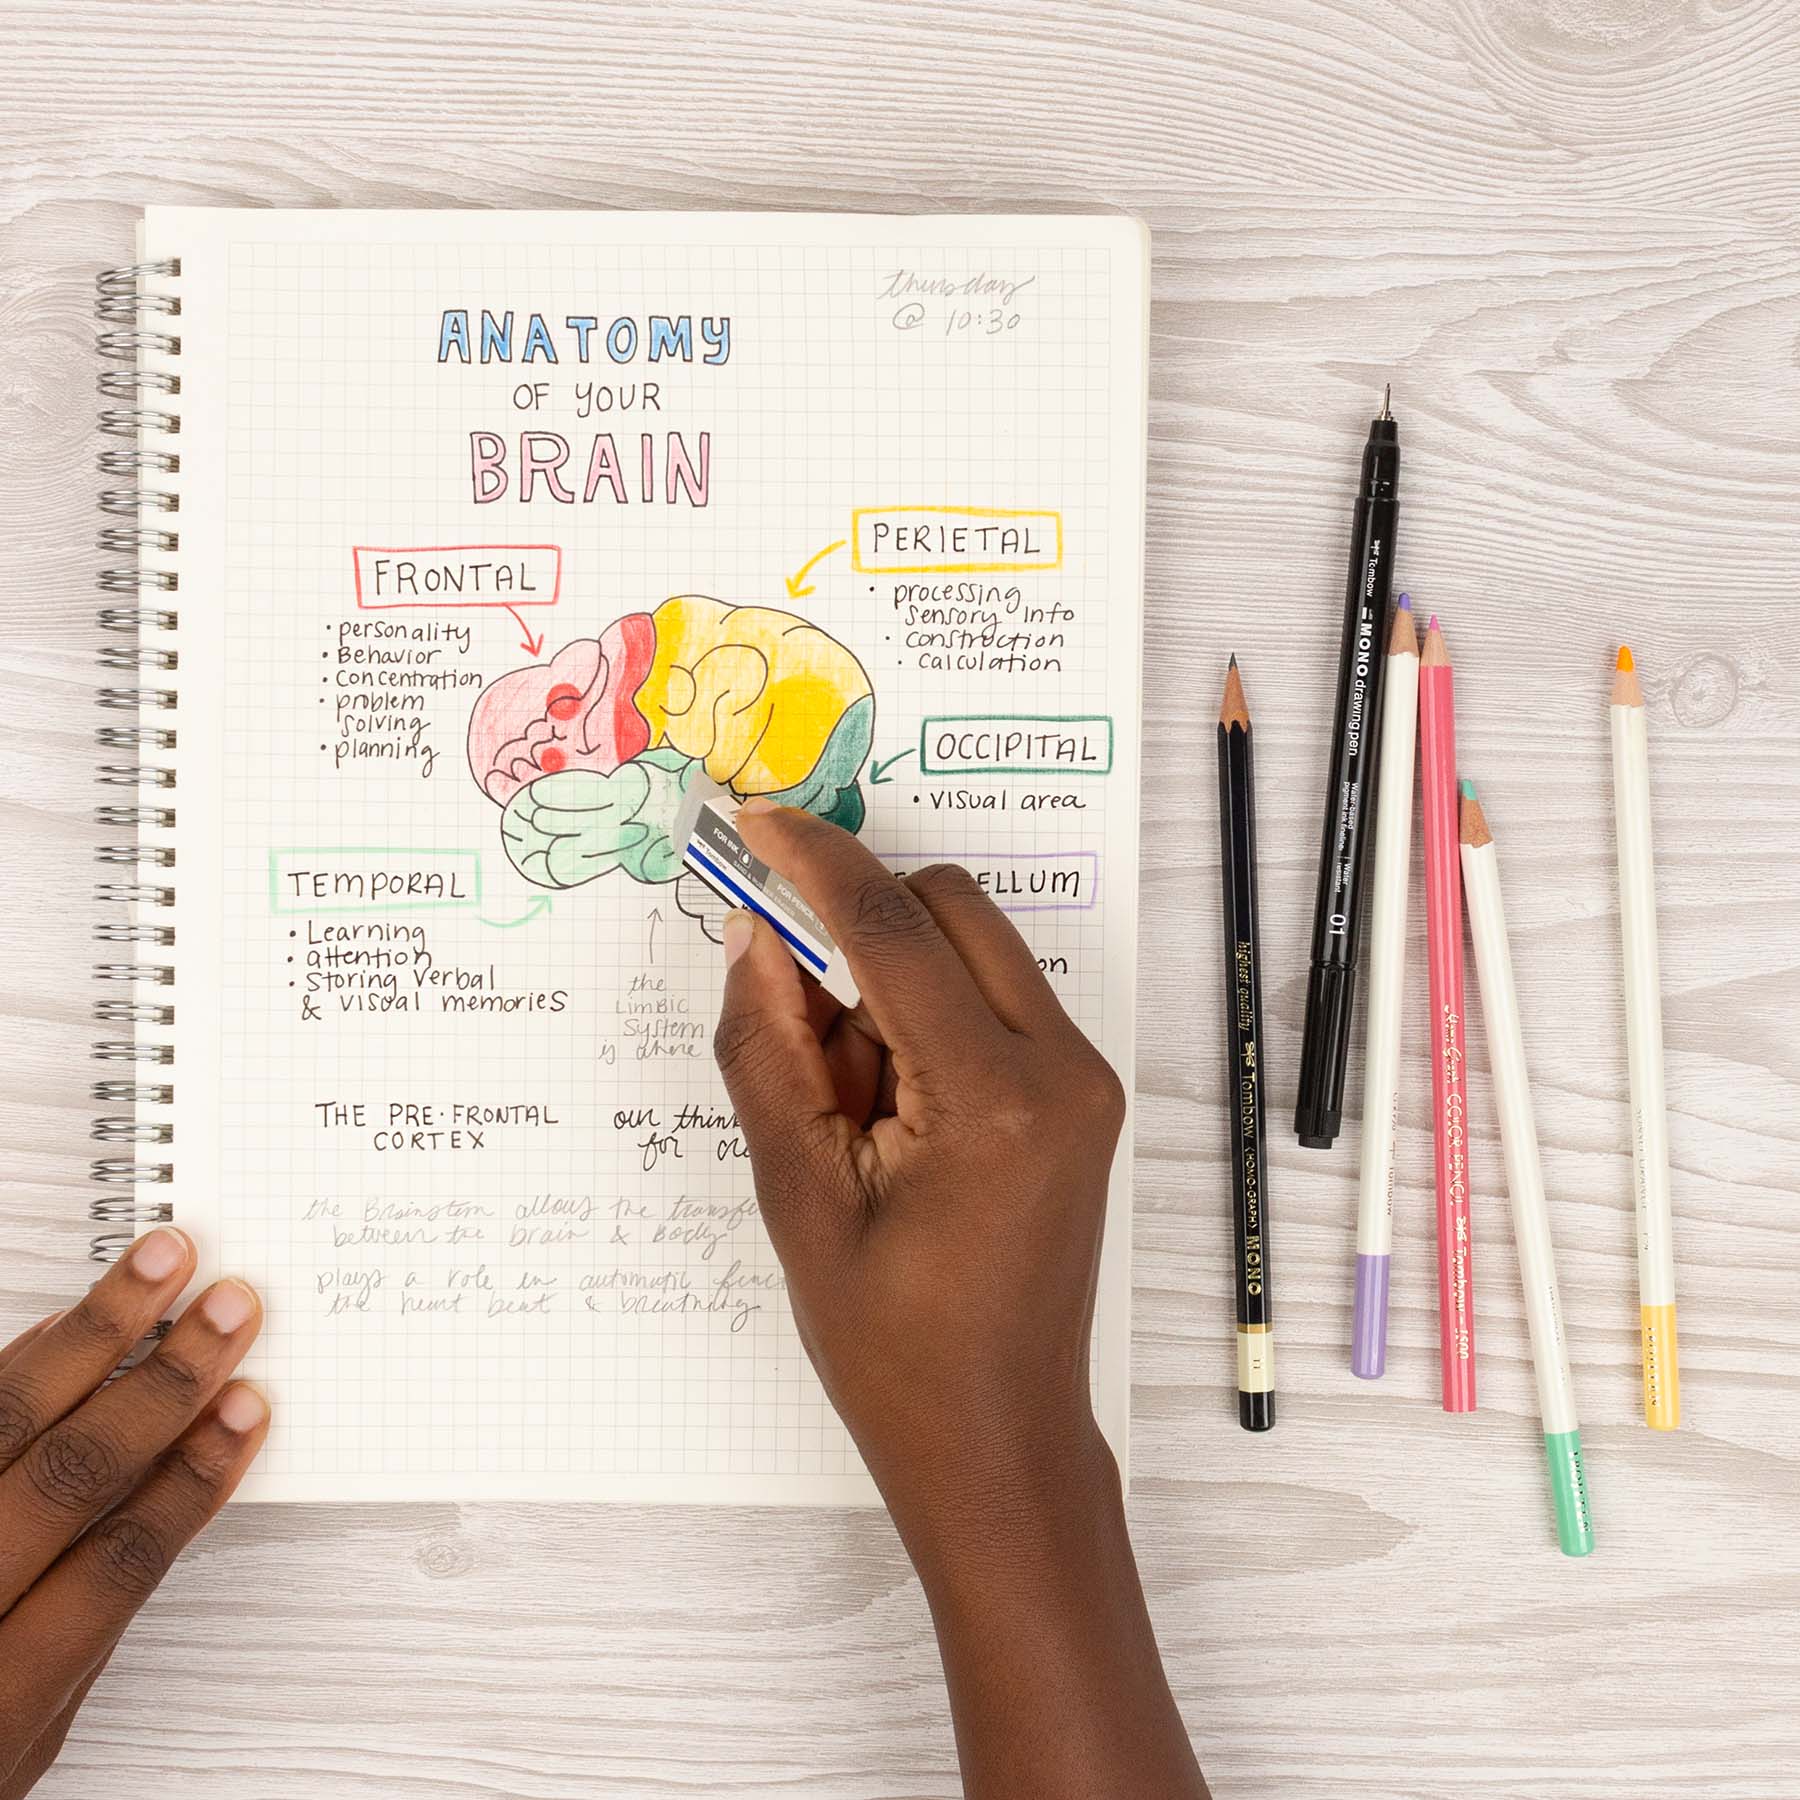 thursday
@ 10:30
ANATOMY
OF YOUR
BRAIN
FRONTAL
• personality
• Behavior
• concentration
• problem
solving
• planning
PERIETAL
• processing
sensory info
• construction
• calculation
OCCIPITAL
• visual area
ELLUM
on
TEMPORAL
• Learning
• attention
• Storing verbal
& visual memories
the
LimBic
System
is where
THE PRE-FRONTAL
CORTEX
our think
for
the Brainstem allows the transfe
between the brain & Body
plays a role in automatic funct
the heart beat & breathing
FOR INK
Tombow
SAND & RUBBER ERASER
FOR PENCIL
Tombow MONO drawing pen
Water-based
pigment ink fineliner
Water
resistant
01
highest quality Tombow <HOMO-GRAPH> MONO
H
Homo Graph COLOR PENCIL Tombow 1500
Tombow